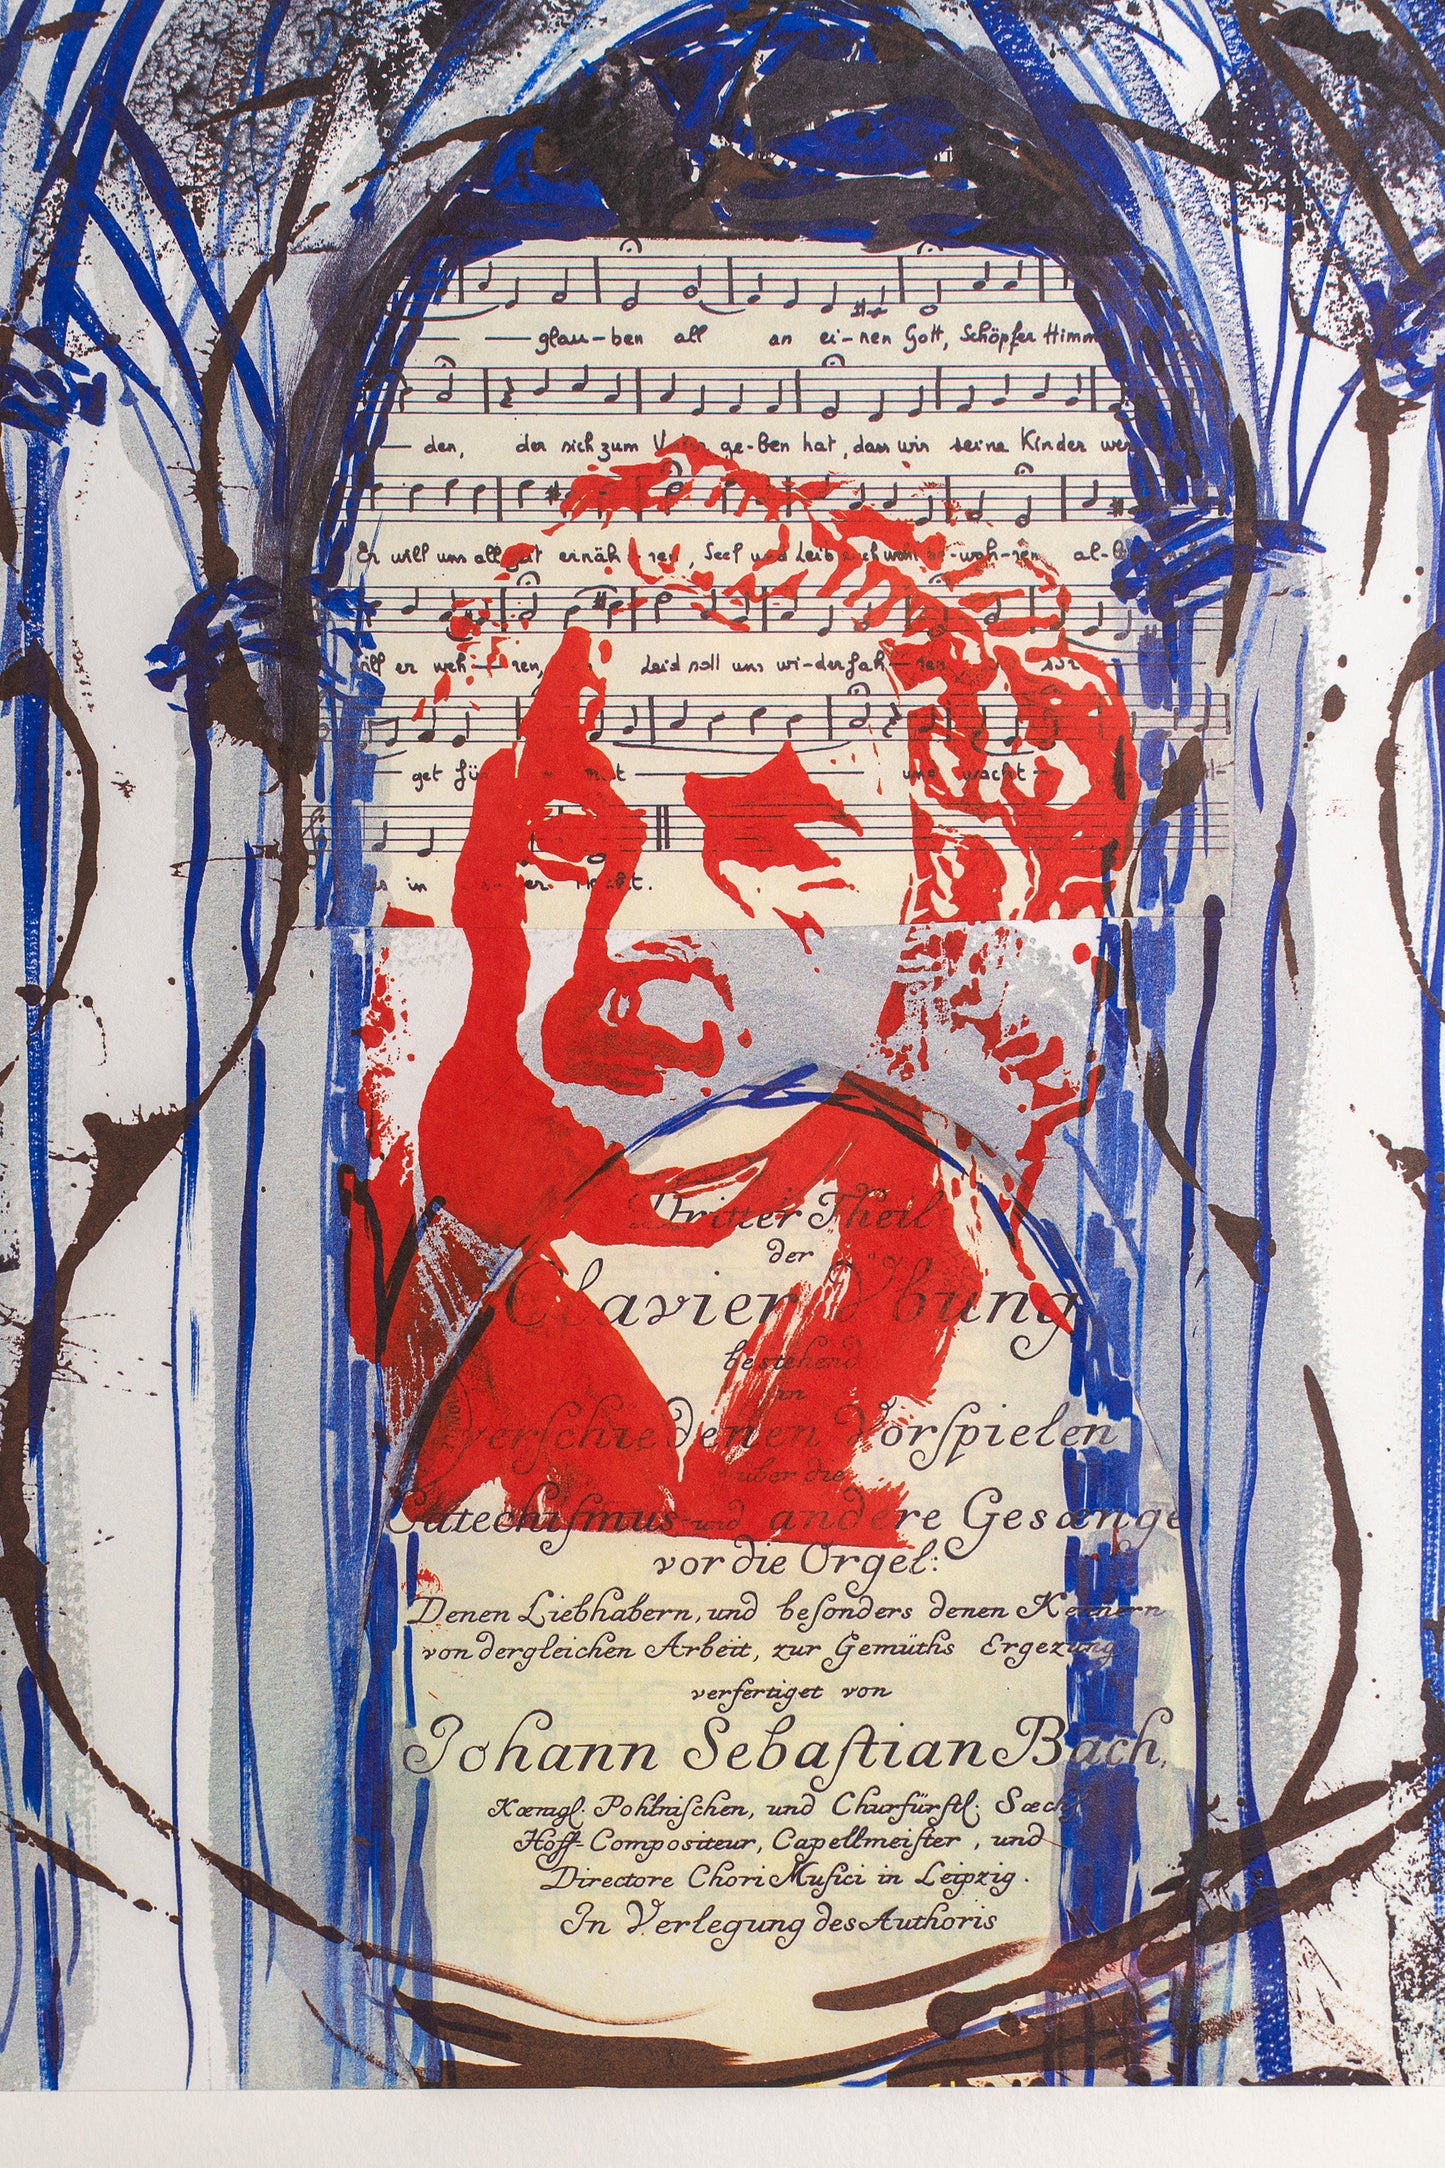 glau-ben all an ei-nen Gott, Schöpfer Himm
den, der sich zum ge-ben hat, dass wir seine Kinder wer
Er will uns all ernäh-ren, Seel und Leib auch wohl be-wah-ren al-l
will er weh-ren, Leid soll uns wi-derfah-ren
get für und wacht
es in
Dritter Theil
der
Clavier Ubung
bestehend
in
verschiedenen Vorspielen
über die
Catechismus- und andere Gesænge
vor die Orgel:
Denen Liebhabern, und besonders denen Kennern
von dergleichen Arbeit, zur Gemüths Ergezung
verfertiget von
Johann Sebastian Bach,
Kœnigl. Pohlnischen, und Churfürstl. Sæchs.
Hoff-Compositeur, Capellmeister, und
Directore Chori Musici in Leipzig.
In Verlegung des Authoris